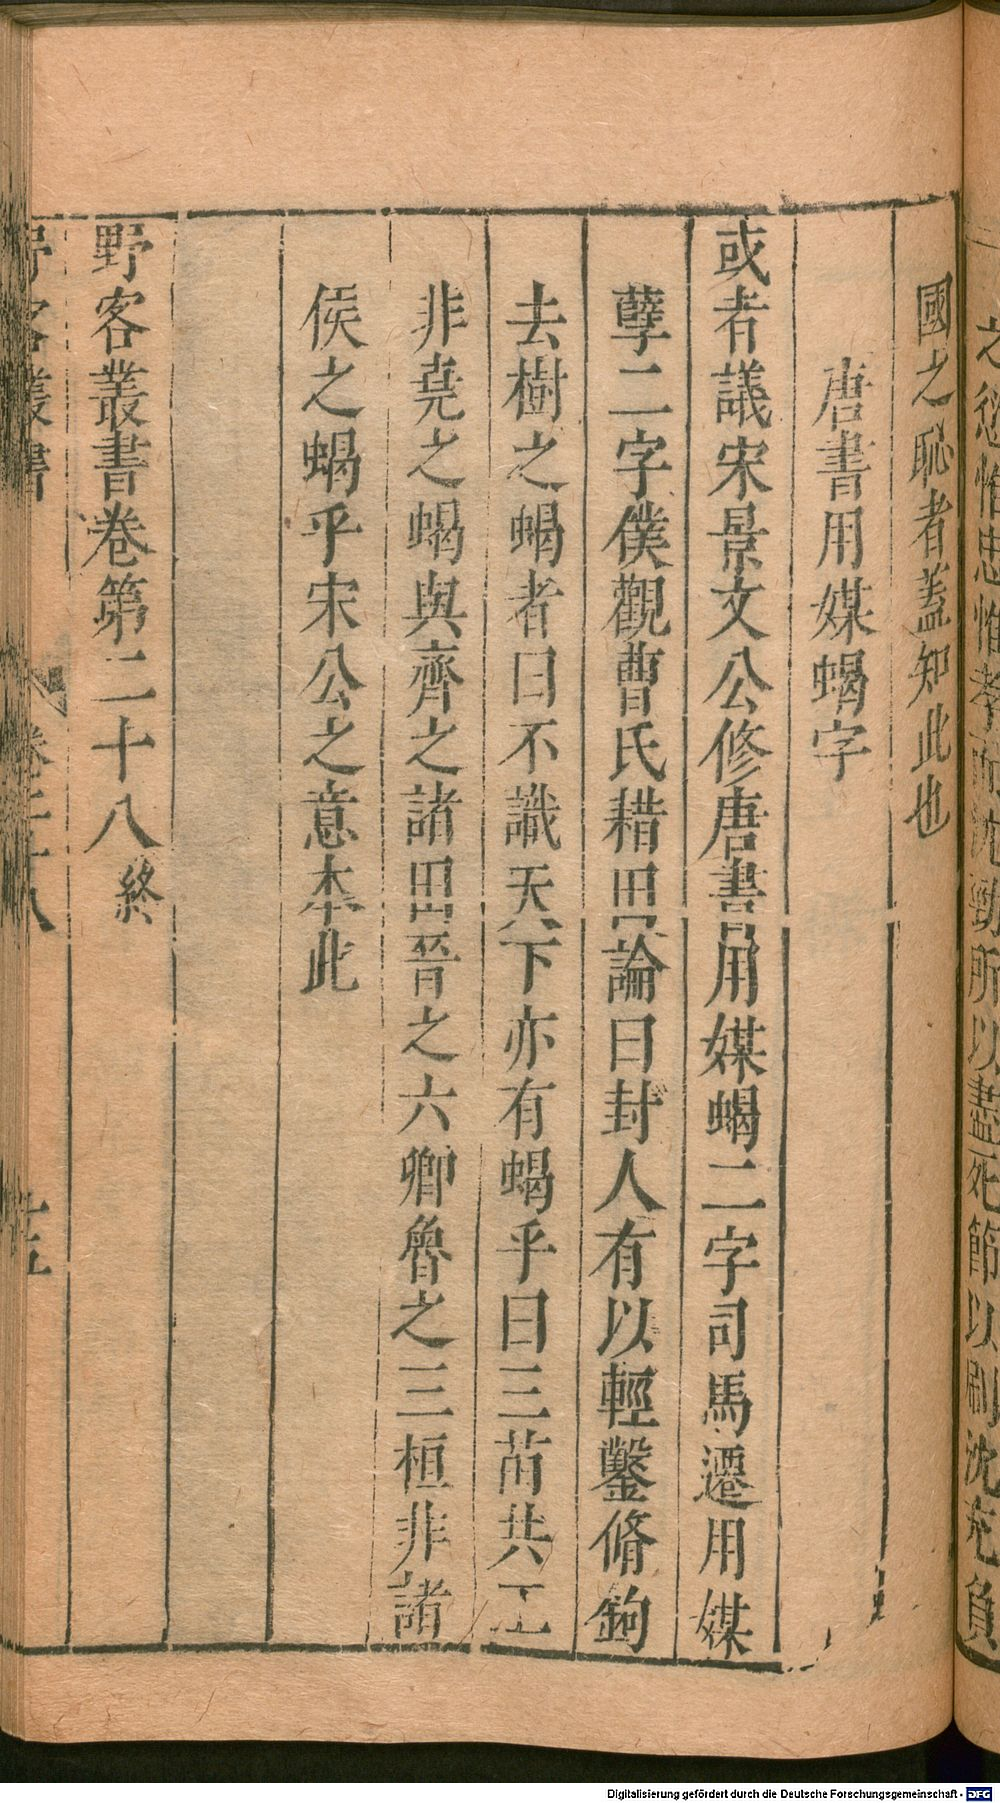 之忿惟忠惟孝而沈勁所以盡死節以刷沈充負
國之恥者蓋知此也
唐書用媒蝎字
或者議宋景文公修唐書用媒蝎二字司馬遷用媒
孽二字僕觀曹氏耤田論曰封人有以輕鑿脩鉤
去樹之蝎者曰不識天下亦有蝎乎曰三苗共工
非堯之蝎與齊之諸田晉之六卿魯之三桓非諸
侯之蝎乎宋公之意本此
野客叢書卷第二十八終
野客叢書
卷二十八
十五
Digitalisierung gefördert durch die Deutsche Forschungsgemeinschaft - DFG